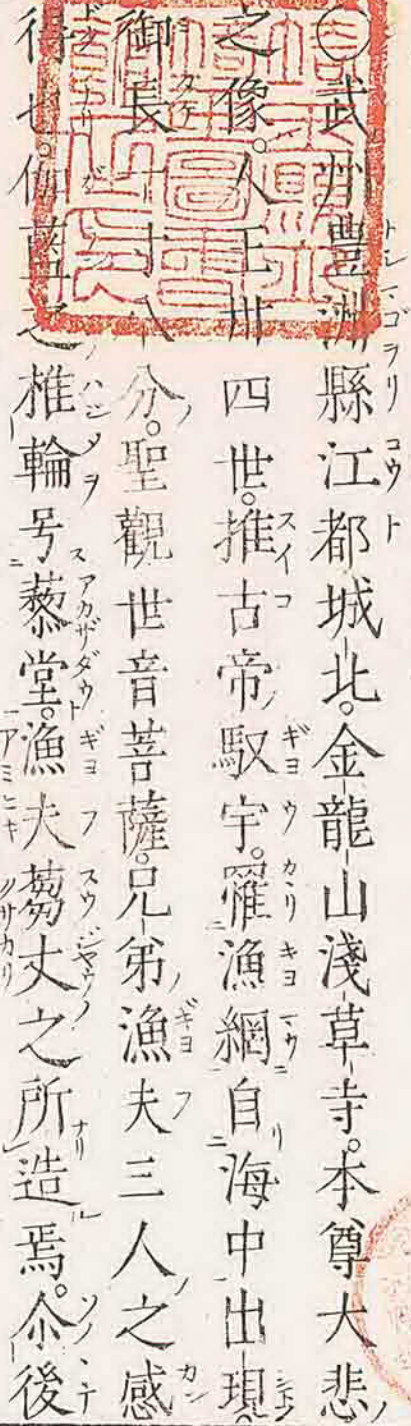 ○武州豐湖縣江都城北。金龍山淺草寺。本尊大悲
之像。人王卅四世。推古帝馭宇。罹漁網自海中出現。
御長一寸八分。聖觀世音菩薩。兄弟漁夫三人之感
得也。伽藍之椎輪号藜堂。漁夫蒭丈之所造焉。尒後